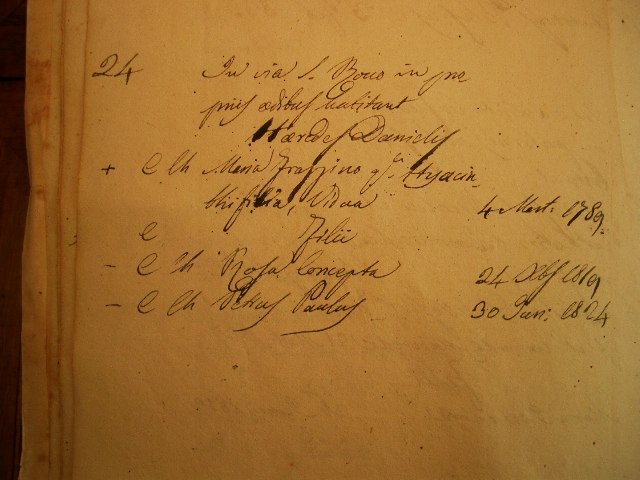 24 In via S. Rocco in pro
priis ædibus habitant
Hæredes Danielis
+ C Ch Maria Frassino q.m Hyacin-
thi filia, Vidua 4 Mart: 1789.
C Filii
- C Ch Rosa Concepta 24 Xbs 1819
- C Ch Petrus Paulus 30 Jun: 1824